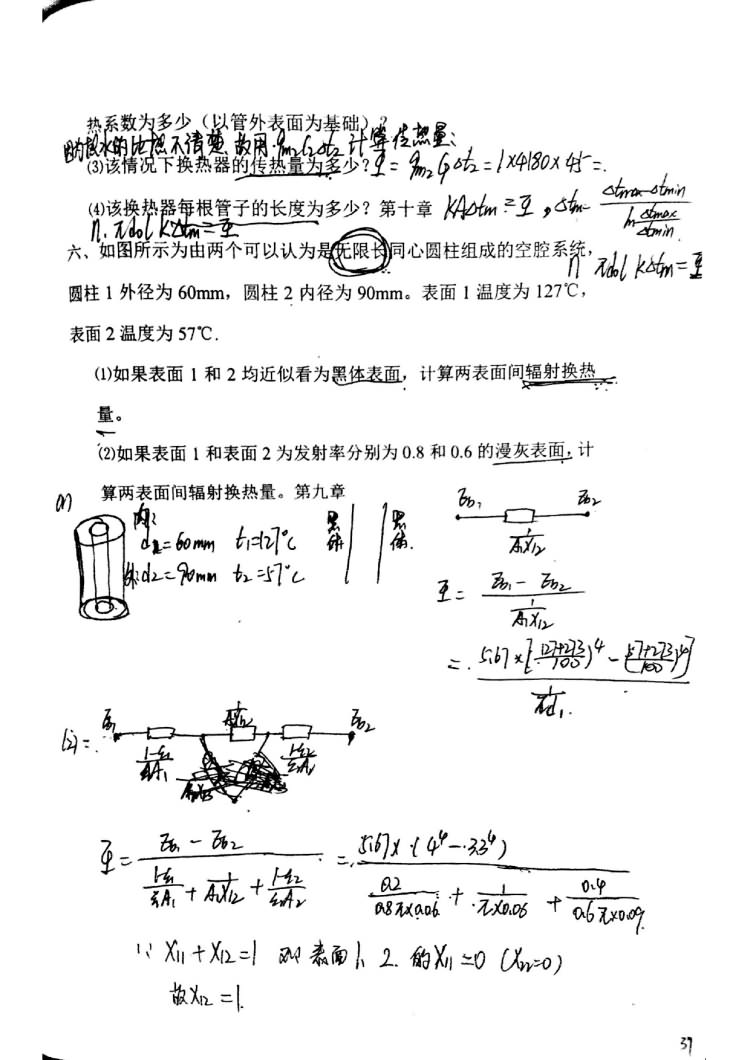 热系数为多少（以管外表面为基础）？
(3)该情况下换热器的传热量为多少？Φ = qm₂ C₂ Δt₂ = 1×4180×45 =.
(4)该换热器每根管子的长度为多少？第十章 KAΔtm = Φ , Δtm (Δtmax-Δtmin)/(ln Δtmax/Δtmin)
n·πdol KΔtm = Φ
六、如图所示为由两个可以认为是无限长同心圆柱组成的空腔系统，
n πdol kΔtm = Φ
圆柱 1 外径为 60mm，圆柱 2 内径为 90mm。表面 1 温度为 127℃，
表面 2 温度为 57℃.
(1)如果表面 1 和 2 均近似看为黑体表面，计算两表面间辐射换热
量。
(2)如果表面 1 和表面 2 为发射率分别为 0.8 和 0.6 的漫灰表面，计
算两表面间辐射换热量。第九章
(1)
Eb₁ Eb₂
1/(A₁X₁₂)
d₁=60mm t₁=127℃ 黑体 黑体.
外: d₂=90mm t₂=57℃
Φ = (Eb₁ - Eb₂)/(1/(A₁X₁₂))
= 5.67×[((127+273)/100)⁴ - ((57+273)/100)⁴]/(1/(πd₁))
(2) =. Eb₁ 1/(A₁X₁₂) Eb₂
(1-ε₁)/(ε₁A₁) (1-ε₂)/(ε₂A₂)
Φ = (Eb₁ - Eb₂)/((1-ε₁)/(ε₁A₁) + 1/(A₁X₁₂) + (1-ε₂)/(ε₂A₂)) =. 5.67×(4⁴-3.3⁴)/(0.2/(0.8π×0.06) + 1/(π×0.06) + 0.4/(0.6π×0.09))
∵ X₁₁ + X₁₂ = 1 对表面1、2. 的X₁₁=0 (X₂₂=0)
故X₁₂ = 1.
37